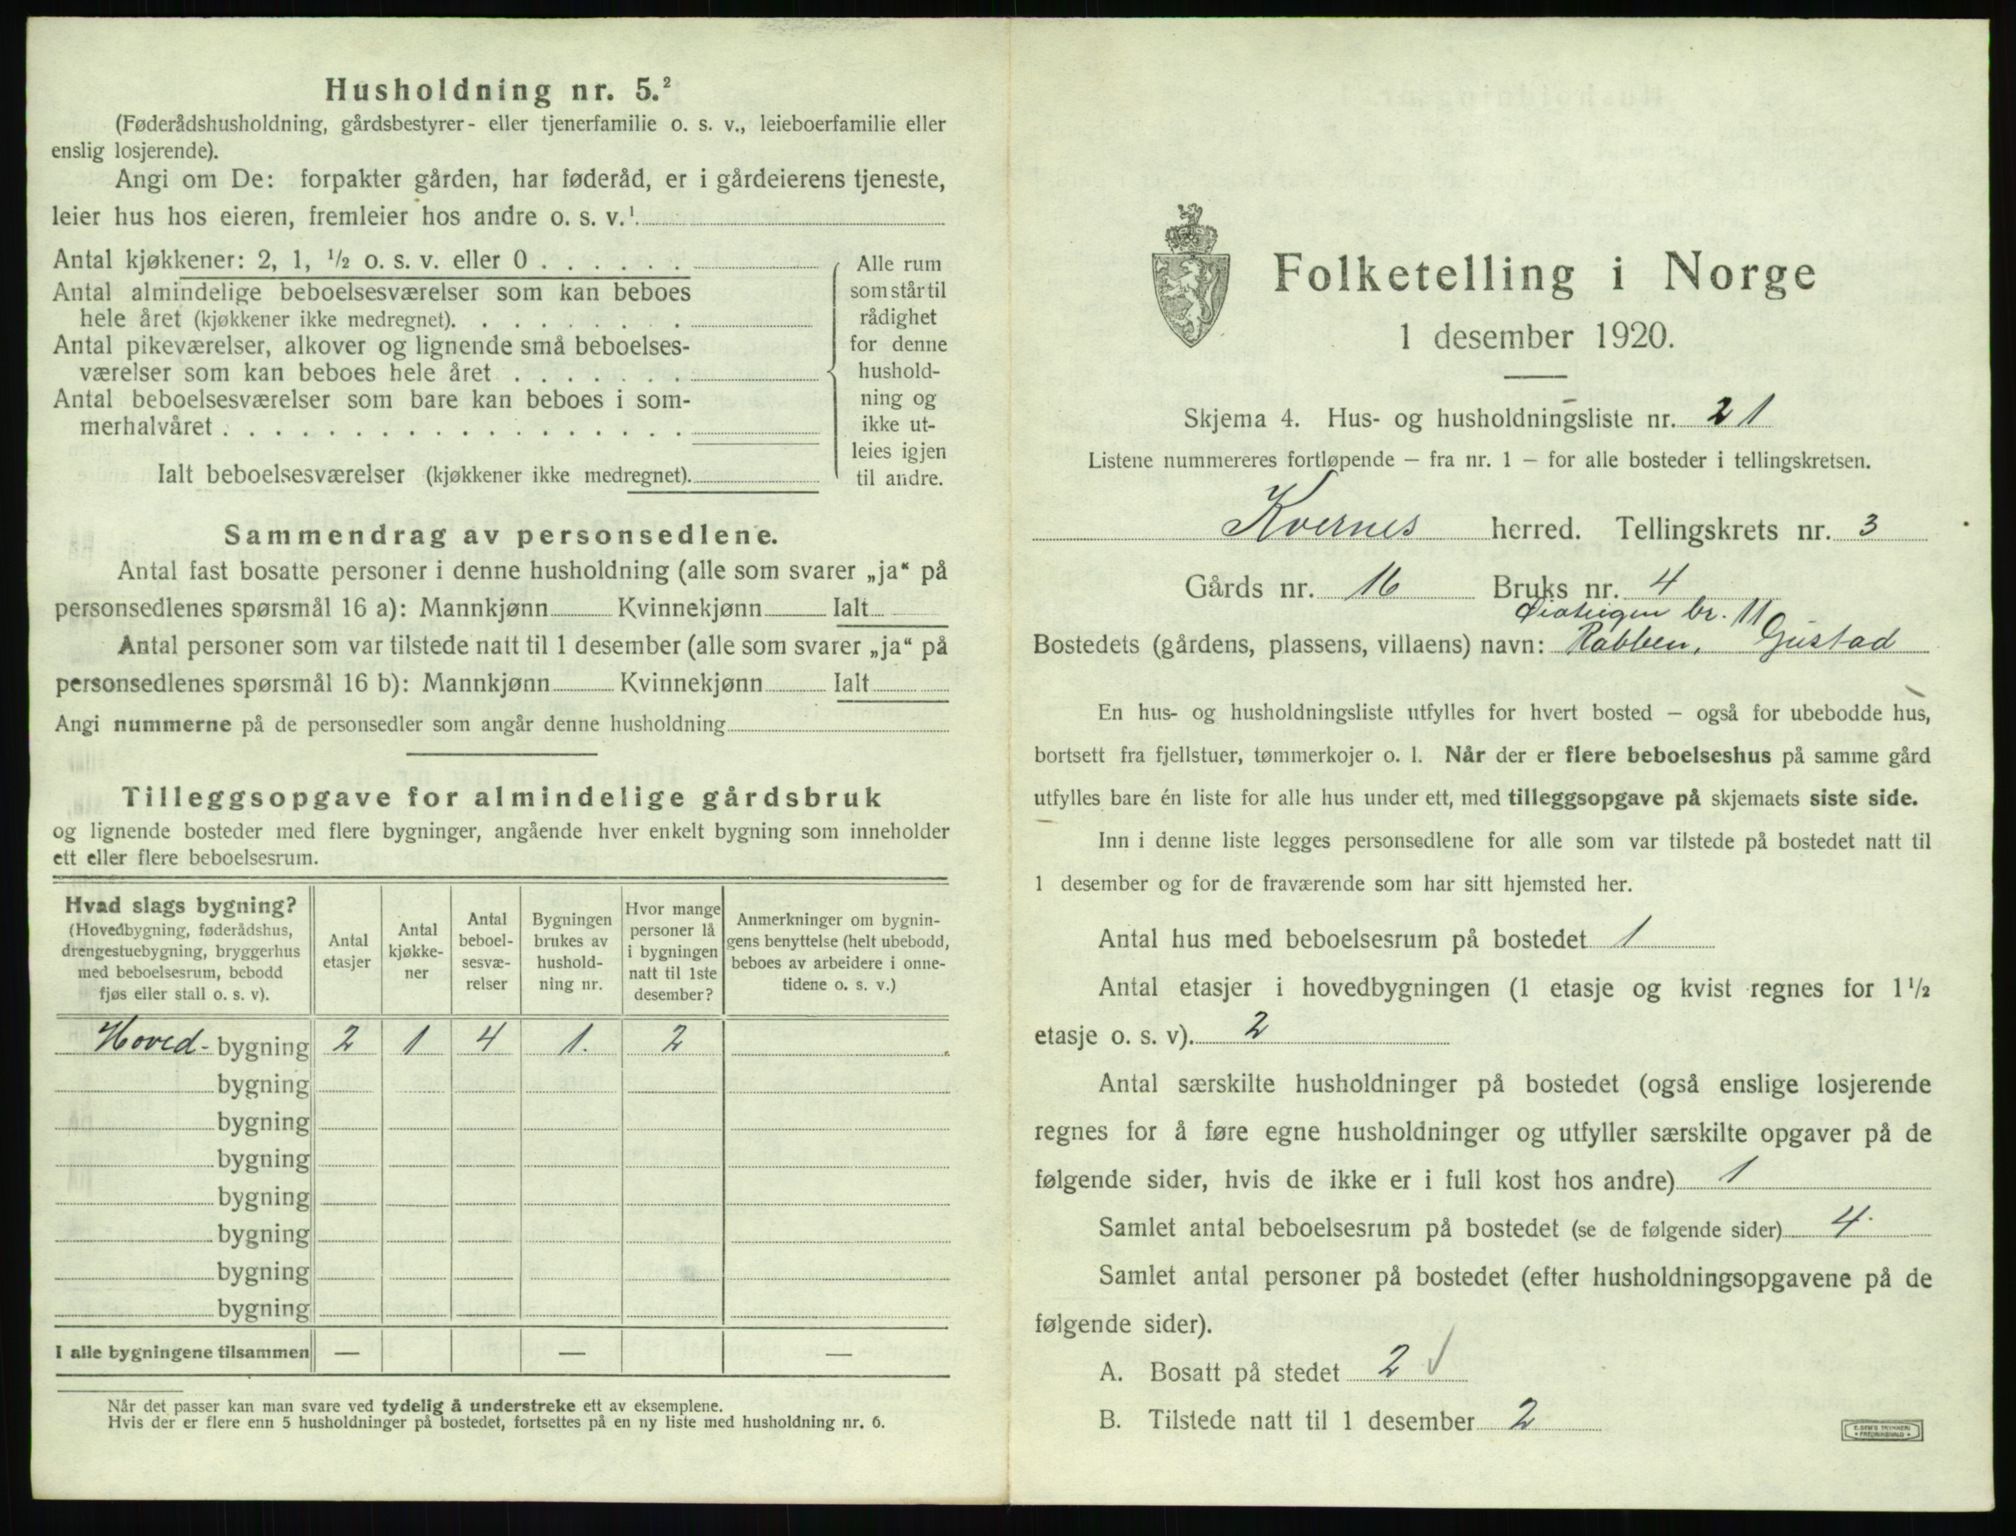 Husholdning nr. 5.²
(Føderådshusholdning, gårdsbestyrer- eller tjenerfamilie o. s. v., leieboerfamilie eller
enslig losjerende).
Angi om De: forpakter gården, har føderåd, er i gårdeierens tjeneste,
leier hus hos eieren, fremleier hos andre o. s. v.¹
Antal kjøkkener: 2, 1, ½ o. s. v. eller 0 . . . . . .
Antal almindelige beboelsesværelser som kan beboes
hele året (kjøkkener ikke medregnet). . . . . . . . .
Antal pikeværelser, alkover og lignende små beboelses-
værelser som kan beboes hele året . . . . . . .
Antal beboelsesværelser som bare kan beboes i som-
merhalvåret . . . . . . . . . . . . . . . . . .
Ialt beboelsesværelser (kjøkkener ikke medregnet).
Alle rum
som står til
rådighet
for denne
hushold-
ning og
ikke ut-
leies igjen
til andre.
Sammendrag av personsedlene.
Antal fast bosatte personer i denne husholdning (alle som svarer „ja“ på
personsedlenes spørsmål 16 a): Mannkjønn Kvinnekjønn Ialt
Antal personer som var tilstede natt til 1 desember (alle som svarer „ja“ på
personsedlenes spørsmål 16 b): Mannkjønn Kvinnekjønn Ialt
Angi nummerne på de personsedler som angår denne husholdning
Tilleggsopgave for almindelige gårdsbruk
og lignende bosteder med flere bygninger, angående hver enkelt bygning som inneholder
ett eller flere beboelsesrum.
Hvad slags bygning?
(Hovedbygning, føderådshus,
drengestuebygning, bryggerhus
med beboelsesrum, bebodd
fjøs eller stall o. s. v).
Antal
etasjer
Antal
kjøkke-
ner
Antal
beboel-
sesvæ-
relser
Bygningen
brukes av
hushold-
ning nr.
Hvor mange
personer lå
i bygningen
natt til 1ste
desember?
Anmerkninger om bygnin-
gens benyttelse (helt ubebodd,
beboes av arbeidere i onne-
tidene o. s. v.)
Hoved- bygning 2 1 4 1. 2
bygning
bygning
bygning
bygning
bygning
bygning
bygning
I alle bygningene tilsammen — — —
Når det passer kan man svare ved tydelig å understreke ett av eksemplene.
Hvis der er flere enn 5 husholdninger på bostedet, fortsettes på en ny liste med husholdning nr. 6.
Folketelling i Norge
1 desember 1920.
Skjema 4. Hus- og husholdningsliste nr. 21
Listene nummereres fortløpende – fra nr. 1 – for alle bosteder i tellingskretsen.
Kvernes herred. Tellingskrets nr. 3
Gårds nr. 16 Bruks nr. 4
br. 11
Bostedets (gårdens, plassens, villaens) navn: Rabben, Gustad
En hus- og husholdningsliste utfylles for hvert bosted – også for ubebodde hus,
bortsett fra fjellstuer, tømmerkojer o. l. Når der er flere beboelseshus på samme gård
utfylles bare én liste for alle hus under ett, med tilleggsopgave på skjemaets siste side.
Inn i denne liste legges personsedlene for alle som var tilstede på bostedet natt til
1 desember og for de fraværende som har sitt hjemsted her.
Antal hus med beboelsesrum på bostedet 1
Antal etasjer i hovedbygningen (1 etasje og kvist regnes for 1½
etasje o. s. v). 2
Antal særskilte husholdninger på bostedet (også enslige losjerende
regnes for å føre egne husholdninger og utfyller særskilte opgaver på de
følgende sider, hvis de ikke er i full kost hos andre) 1
Samlet antal beboelsesrum på bostedet (se de følgende sider) 4
Samlet antal personer på bostedet (efter husholdningsopgavene på de
følgende sider).
A. Bosatt på stedet 2 ✓
B. Tilstede natt til 1 desember 2